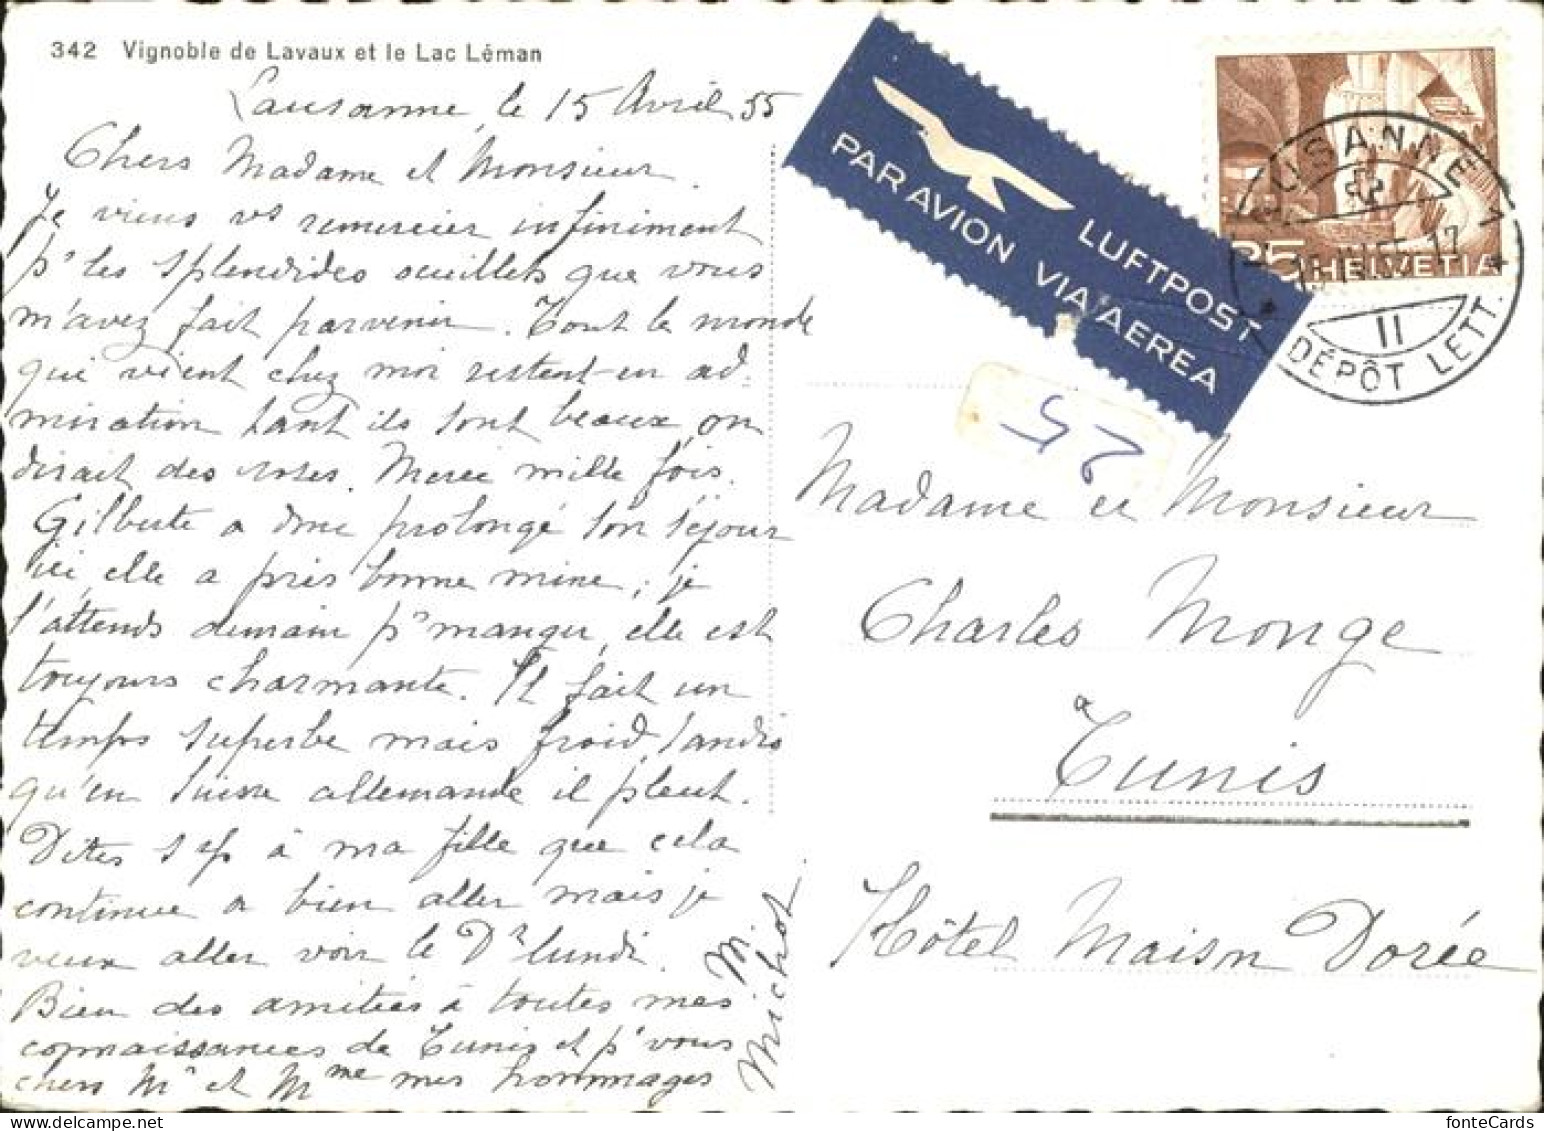 342 Vignoble de Lavaux et le Lac Léman
Lausanne, le 15 Avril 55
Chers Madame et Monsieur.
Je viens vs remercier infiniment
pr les splendides oeuillets que vous
m'avez fait parvenir. Tout le monde
qui vient chez moi restent en ad-
miration tant ils sont beaux, on
dirait des roses. Merci mille fois.
Gilberte a donc prolongé son séjour
ici, elle a très bonne mine, je
l'attends demain pr manger, elle est
toujours charmante. Il fait un
temps superbe mais froid, tandis
qu'en Suisse allemande il pleut.
Dites svp à ma fille que cela
continue a bien aller mais je
veux aller voir le Dr lundi.
Bien des amitiés à toutes mes
connaissances de Tunis et pr vous
chers Mr et Mme mes hommages
M. Michot.
PAR AVION VIA AEREA
LUFTPOST
25
HELVETIA
35
LAUSANNE 1
15.IV.55-17
II
DÉPÔT LETT.
Madame et Monsieur
Charles Monge
à
Tunis
Hôtel Maison Dorée
fonteCards